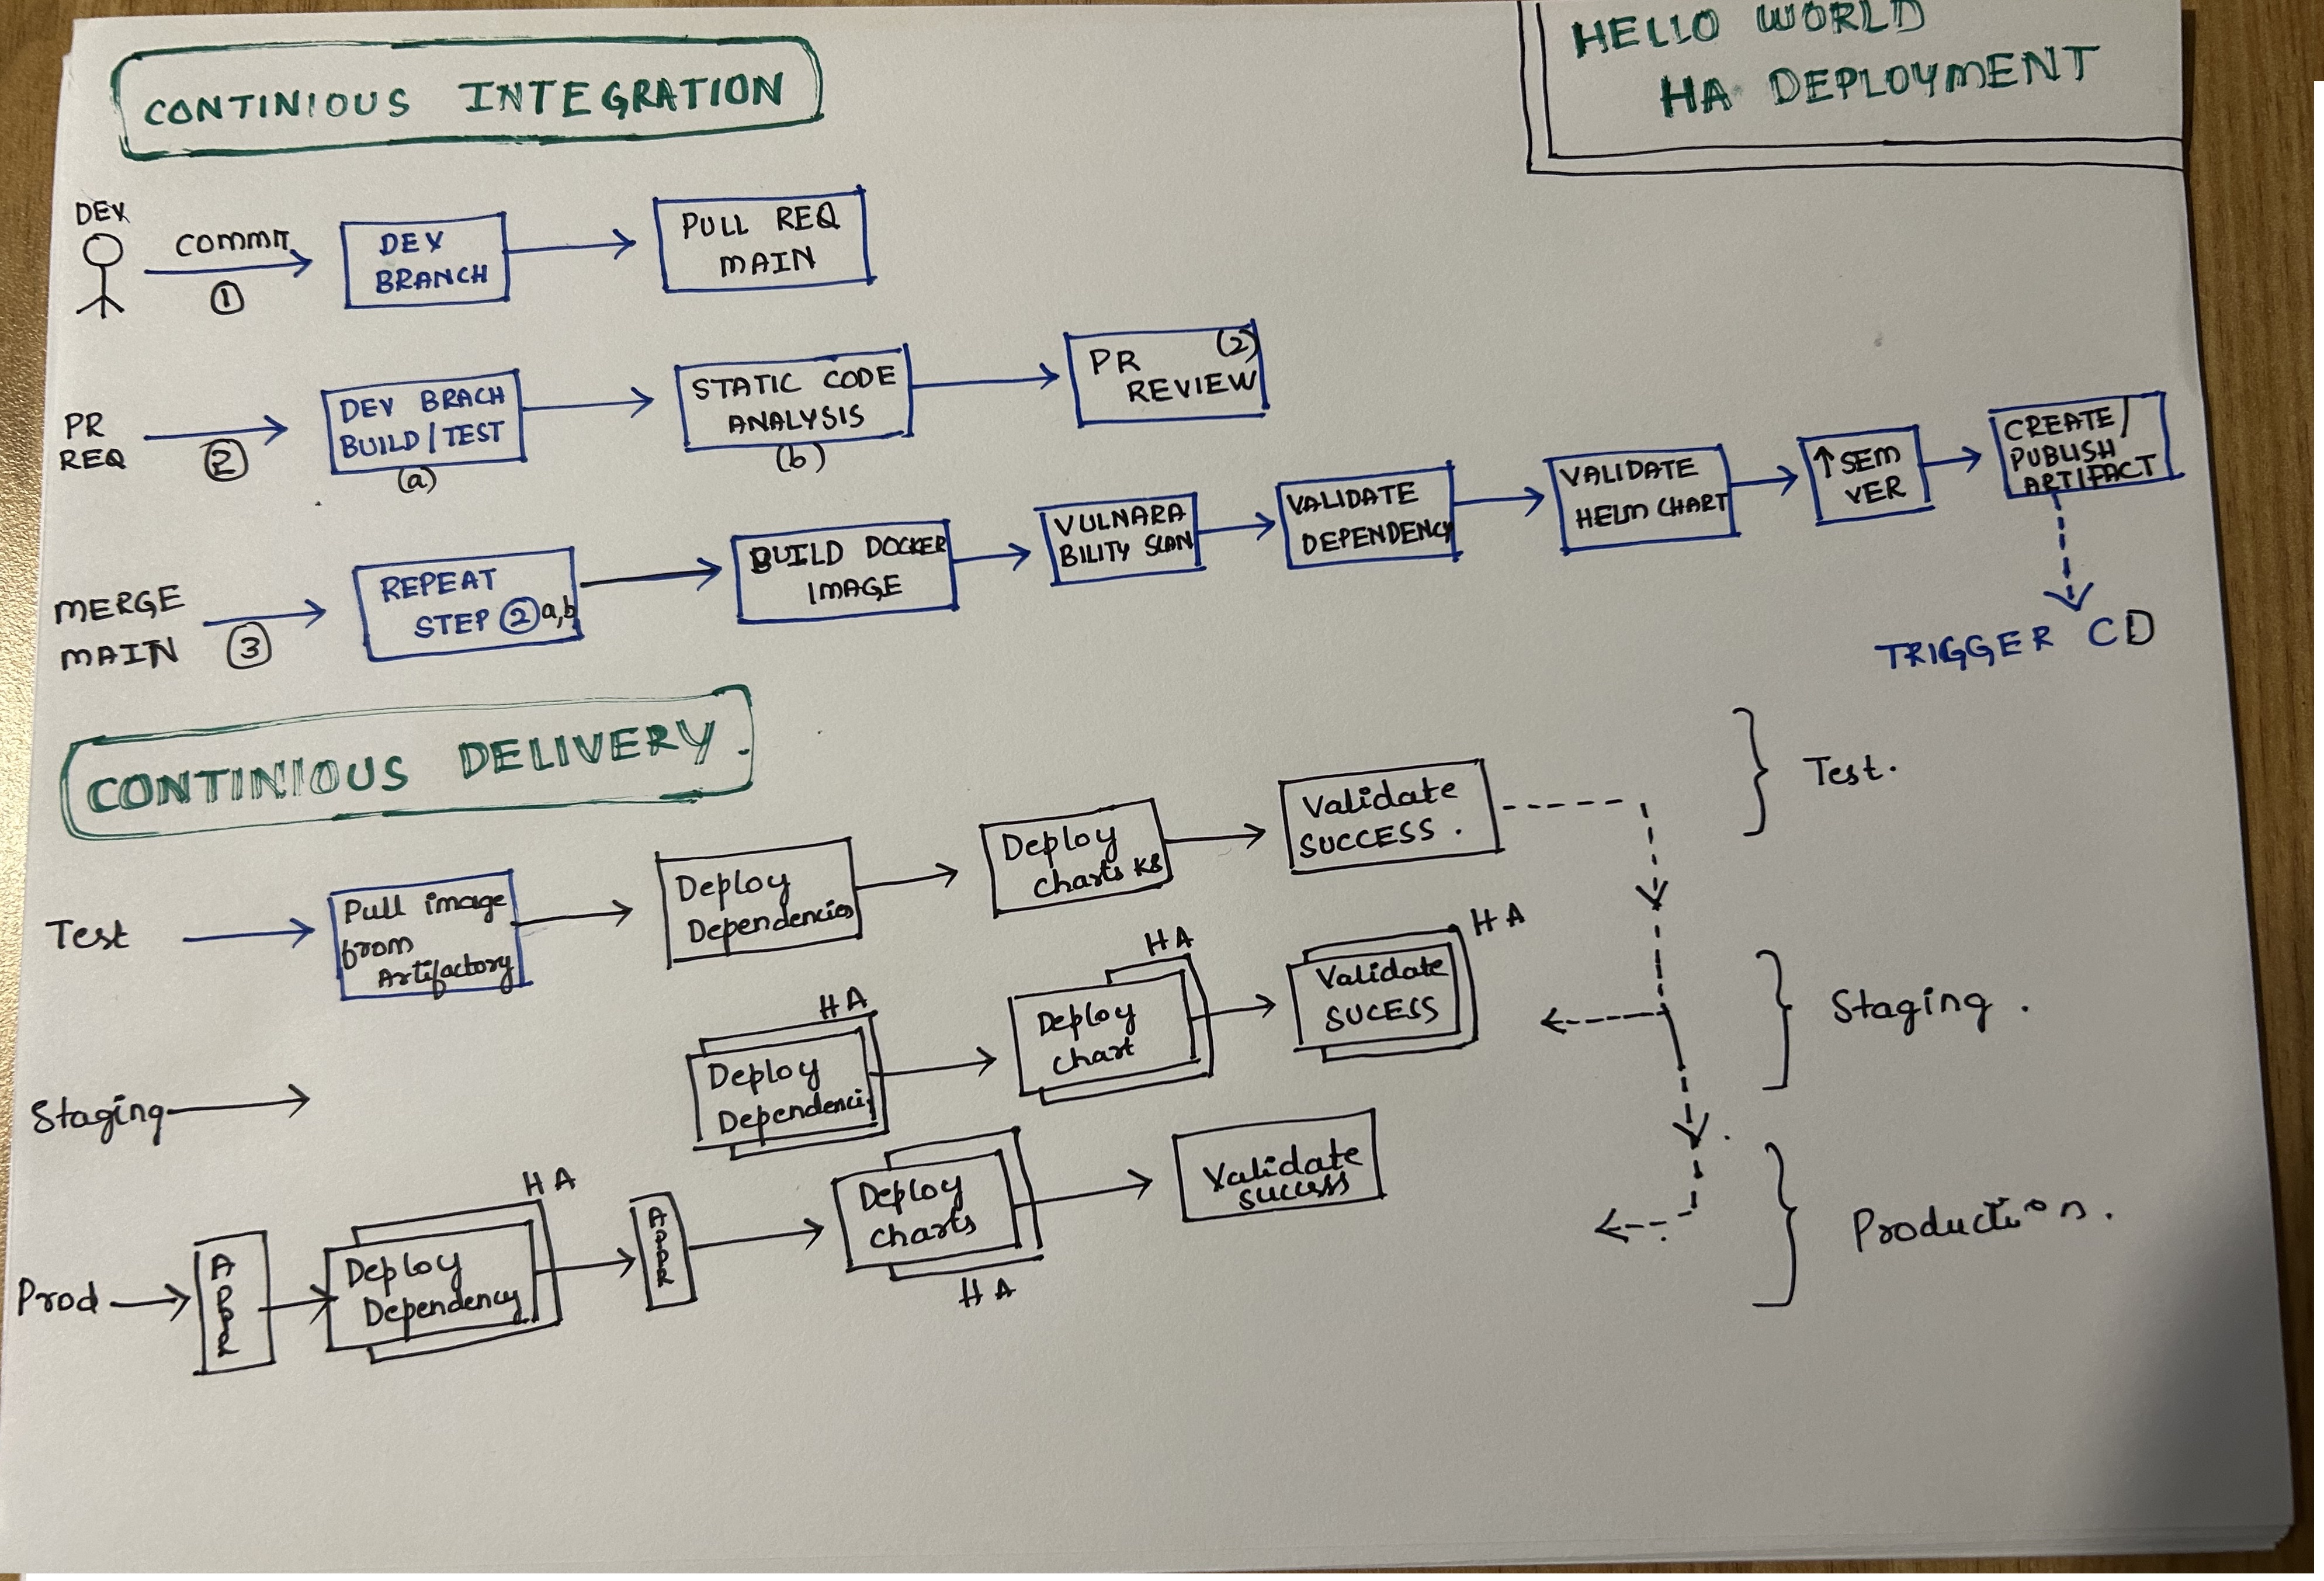 HELLO WORLD
HA DEPLOYMENT
CONTINIOUS INTEGRATION
DEV
COMMIT
1
DEV
BRANCH
PULL REQ
MAIN
PR
REQ
2
DEV BRACH
BUILD/TEST
(a)
STATIC CODE
ANALYSIS
(b)
PR (2)
REVIEW
MERGE
MAIN
3
REPEAT
STEP 2 a,b
BUILD DOCKER
IMAGE
VULNARA
BILITY SCAN
VALIDATE
DEPENDENCY
VALIDATE
HELM CHART
↑ SEM
VER
CREATE/
PUBLISH
ARTIFACT
TRIGGER CD
CONTINIOUS DELIVERY.
Test
Pull image
from
Artifactory
Deploy
Dependencies
Deploy
Charts K8
Validate
SUCCESS.
Test.
Staging
HA
Deploy
Dependenci
HA
Deploy
Chart
HA
Validate
SUCESS
Staging.
Prod
APPR
HA
Deploy
Dependency
APPR
Deploy
Charts
HA
Validate
success
Production.